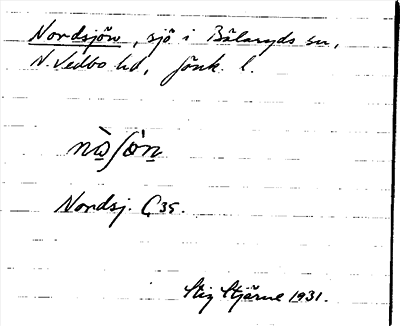 Nordsjön, sjö i Bälaryds sn,
N. Vedbo hd, Jönk. l.
Nordsj. C 39.
Stig Stjärne 1931.